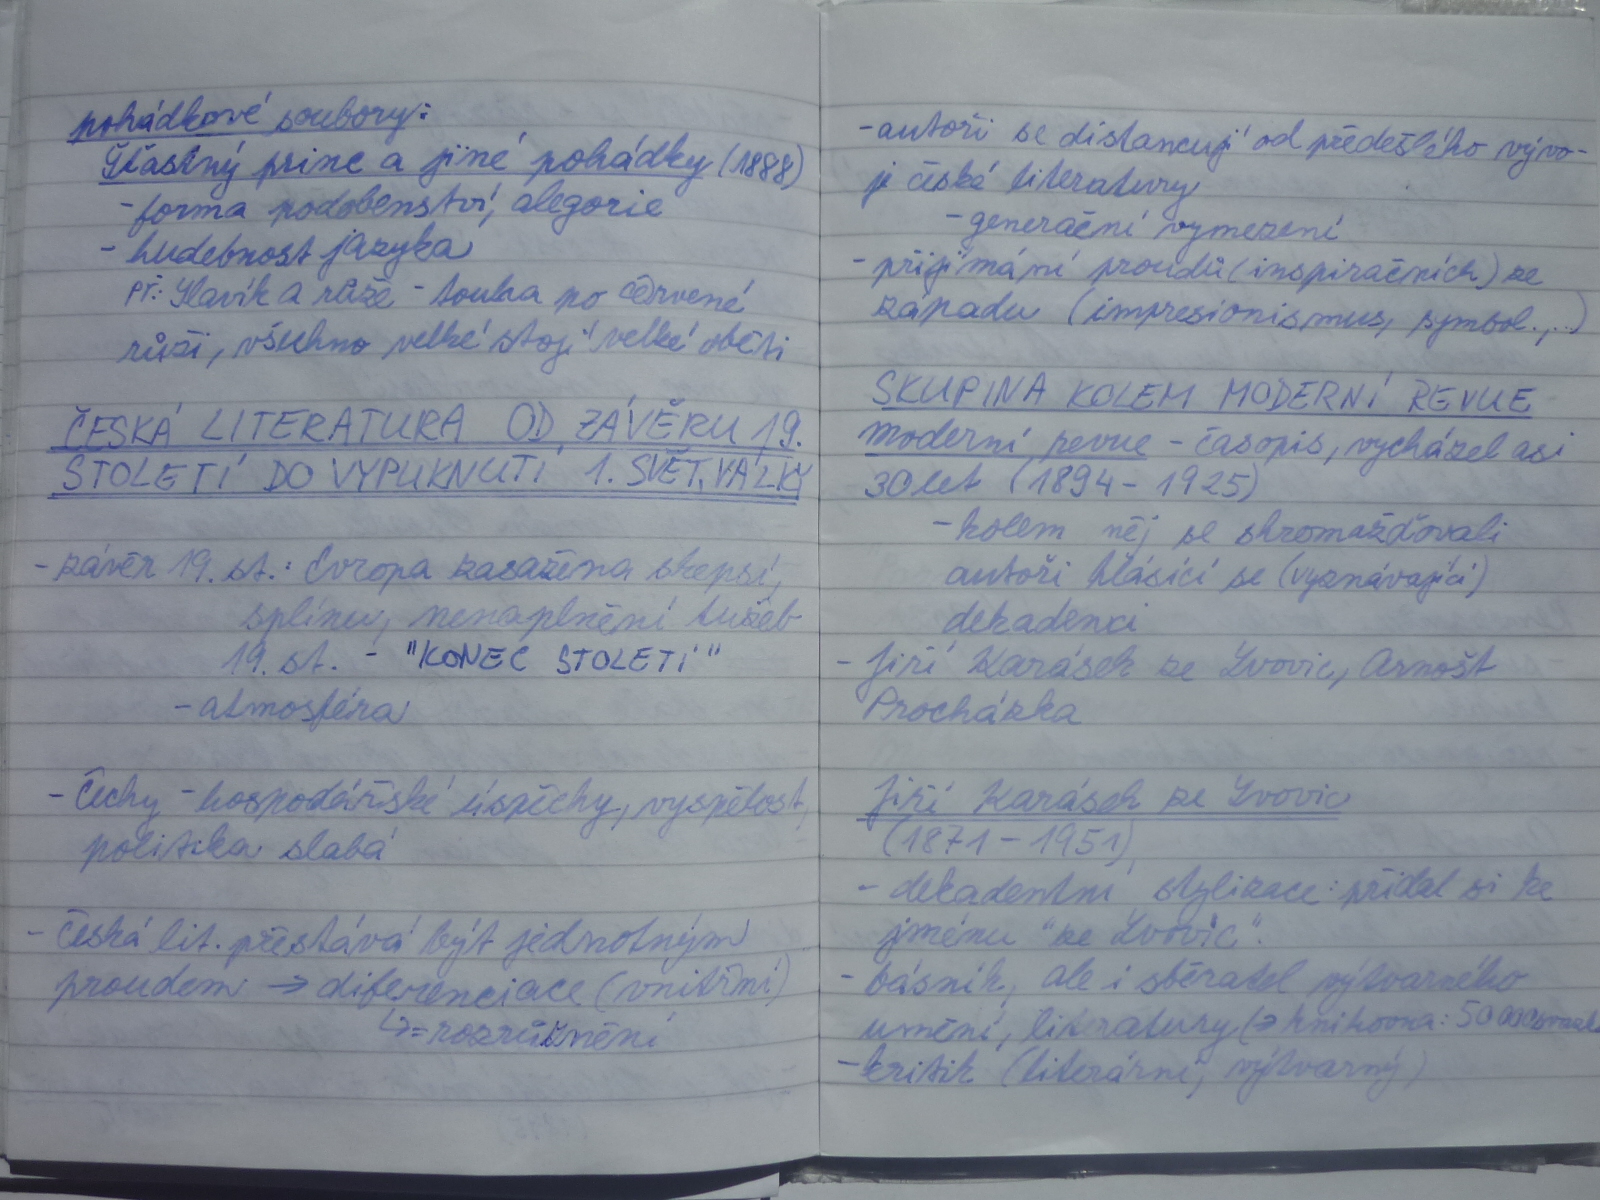 pohádkové soubory:
Šťastný princ a jiné pohádky (1888)
- forma podobenství, alegorie
- hudebnost jazyka
př.: Slavík a růže - touha po červené
růži, všechno velké stojí velké oběti
ČESKÁ LITERATURA OD ZÁVĚRU 19.
STOLETÍ DO VYPUKNUTÍ 1. SVĚT. VÁLKY
- závěr 19. st.: Evropa zasažena skepsí,
splínu, nenaplnění tužeb
19. st. - "KONEC STOLETÍ"
- atmosféra
- Čechy - hospodářské úspěchy, vyspělost,
politika slabá
- česká lit. přestává být jednotným
proudem → diferenciace (vnitřní)
↳ = rozrůznění
- autoři se distancují od předešlého vývo-
je české literatury
- generační vymezení
- přijímání proudů (inspiračních) ze
západu (impresionismus, symbol., ..)
SKUPINA KOLEM MODERNÍ REVUE
Moderní revue - časopis, vycházel asi
30 let (1894 - 1925)
- kolem něj se shromažďovali
autoři hlásící se (vyznávající)
dekadenci
- Jiří Karásek ze Lvovic, Arnošt
Procházka
Jiří Karásek ze Lvovic
(1871 - 1951)
- dekadentní stylizace: přidal si ke
jménu "ze Lvovic".
- básník, ale i sběratel výtvarného
umění, literatury (→ knihovna: 50 000
- kritik (literární, výtvarný)